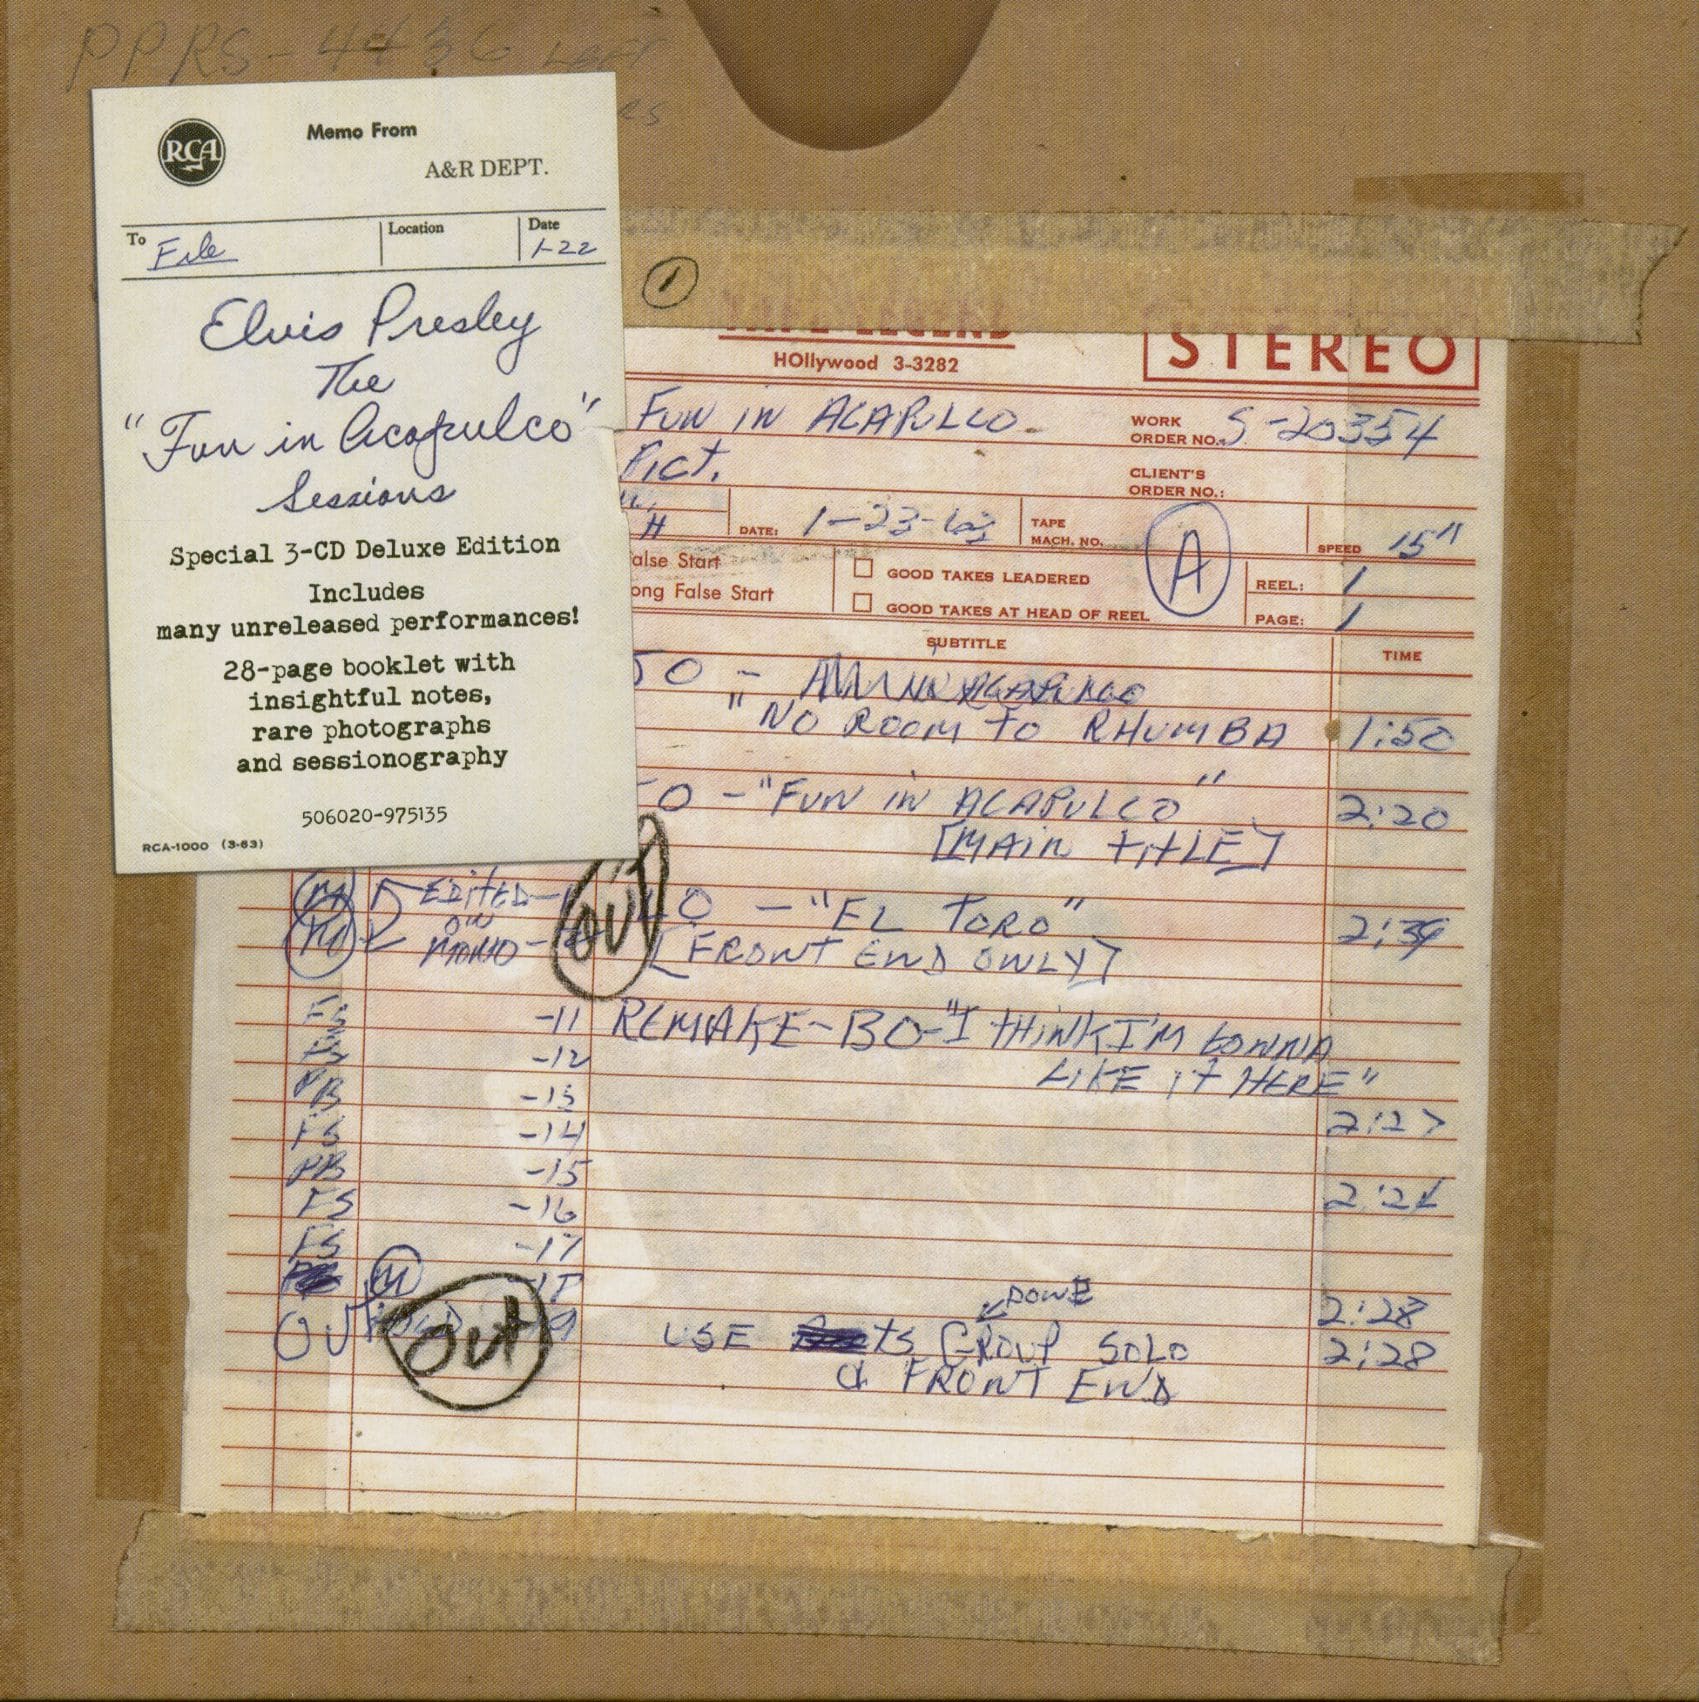 PPRS-4436 LEFT
RCA
Memo From
A&R DEPT.
To File
Location
Date 1-22
Elvis Presley
The
"Fun in Acapulco"
Sessions
Special 3-CD Deluxe Edition
Includes
many unreleased performances!
28-page booklet with
insightful notes,
rare photographs
and sessionography
506020-975135
RCA-1000 (3-63)
1
TAPE LEGEND
HOllywood 3-3282
STEREO
FUN IN ACAPULCO
WORK ORDER NO. S-20354
Pict.
CLIENT'S ORDER NO.:
H
DATE: 1-23-63
TAPE MACH. NO. A
SPEED 15"
alse Start
ong False Start
GOOD TAKES LEADERED
GOOD TAKES AT HEAD OF REEL
REEL: 1
PAGE: 1
SUBTITLE
TIME
"NO ROOM TO RHUMBA 1:50
O - "FUN IN ACAPULCO" 2:20
[MAIN TITLE]
M EDITED - OUT O - "EL TORO"
ON
M MONO - [FRONT END ONLY]
FS -11 REMAKE - BO - "I THINK I'M GONNA
FS -12 LIKE IT HERE"
PB -13 2:27
FS -14
PB -15
FS -16
FS -17
M 2:28
OUT HOLD OUT USE GROUP SOLO 2:28
DONE
FRONT END